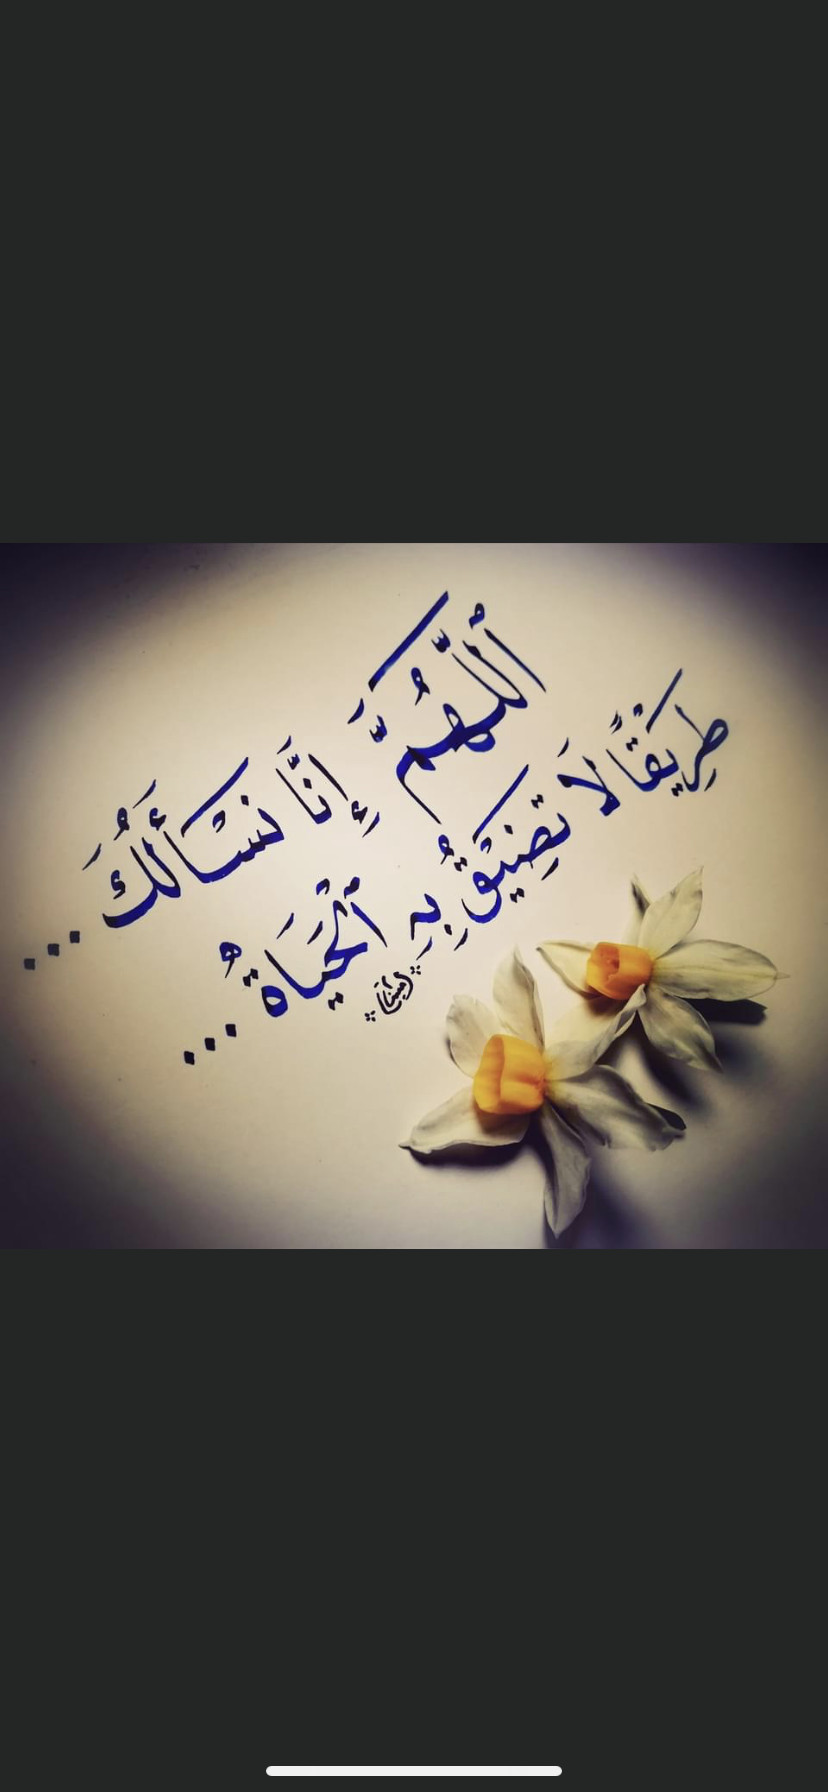 اَللَّهُمَّ إِنَّا نَسْأَلُكَ...
طَرِيقًا لَا تَضِيقُ بِهِ ٱلْحَيَاةُ...